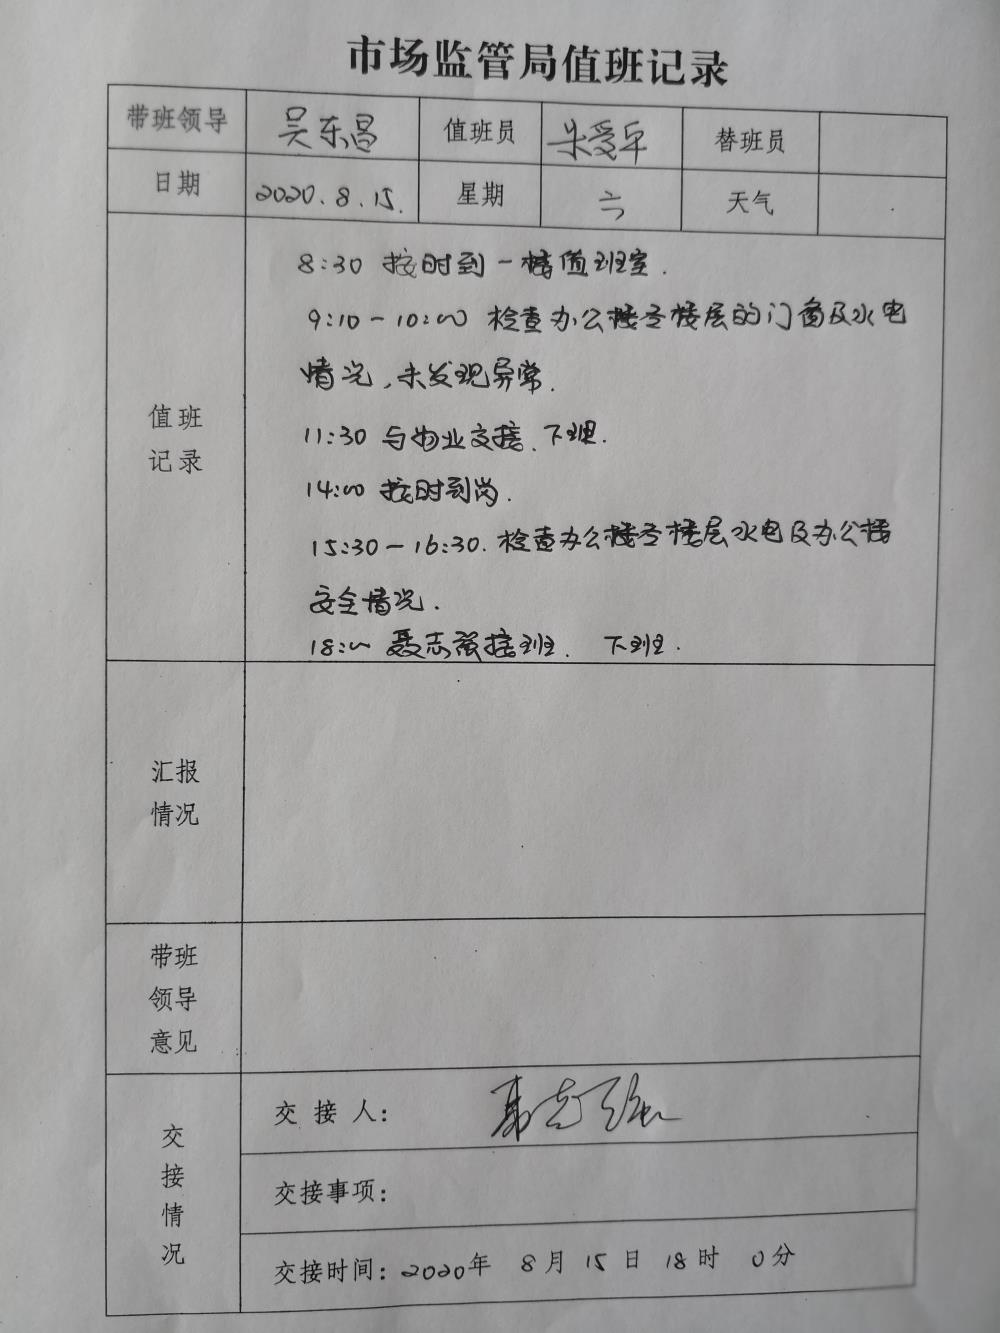 市场监管局值班记录
带班领导 吴东昌 值班员 朱爱平 替班员
日期 2020.8.15. 星期 六 天气
值班记录
8:30 按时到一楼值班室.
9:10-10:00 检查办公楼各楼层的门窗及水电
情况,未发现异常.
11:30 与物业交接、下班.
14:00 按时到岗.
15:30-16:30. 检查办公楼各楼层水电及办公楼
安全情况.
18:00 聂志强接班. 下班.
汇报情况
带班领导意见
交接情况
交接人: 聂志强
交接事项:
交接时间: 2020年 8月 15日 18时 0分